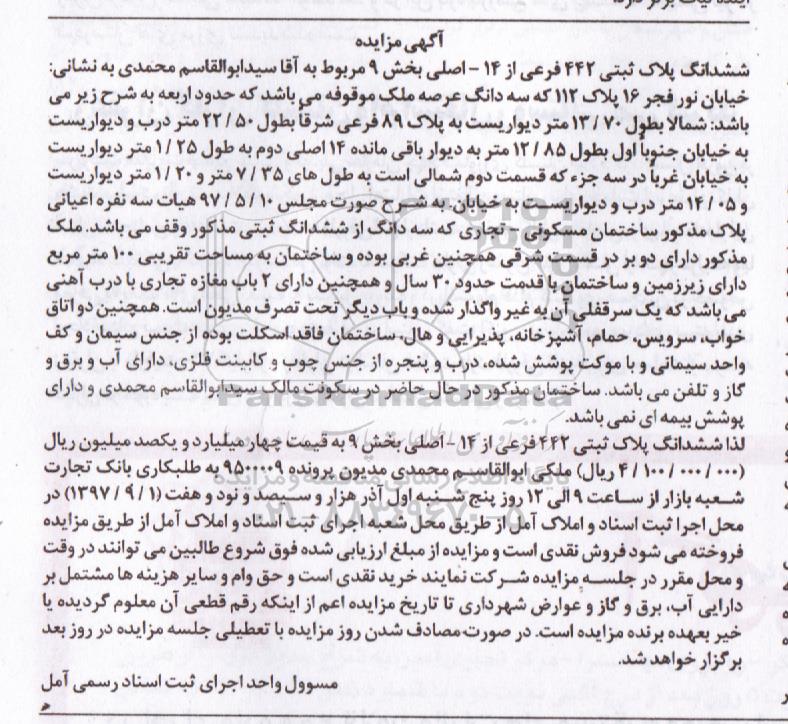 آگهی مزایده
ششدانگ پلاک ثبتی ۴۴۲ فرعی از ۱۴ - اصلی بخش ۹ مربوط به آقا سیدابوالقاسم محمدی به نشانی:
خیابان نور فجر ۱۶ پلاک ۱۱۲ که سه دانگ عرصه ملک موقوفه می باشد که حدود اربعه به شرح زیر می
باشد: شمالا بطول ۷۰ / ۱۳ متر دیواریست به پلاک ۸۹ فرعی شرقاً بطول ۵۰ / ۲۲ متر درب و دیواریست
به خیابان جنوباً اول بطول ۸۵ / ۱۲ متر به دیوار باقی مانده ۱۴ اصلی دوم به طول ۲۵ / ۱ متر دیواریست
به خیابان غرباً در سه جزء که قسمت دوم شمالی است به طول های ۳۵ / ۷ متر و ۲۰ / ۱ متر دیواریست
و ۰۵ / ۱۴ متر درب و دیواریست به خیابان. به شرح صورت مجلس ۱۰ / ۵ / ۹۷ هیات سه نفره اعیانی
پلاک مذکور ساختمان مسکونی - تجاری که سه دانگ از ششدانگ ثبتی مذکور وقف می باشد. ملک
مذکور دارای دو بر در قسمت شرقی همچنین غربی بوده و ساختمان به مساحت تقریبی ۱۰۰ متر مربع
دارای زیرزمین و ساختمان با قدمت حدود ۳۰ سال و همچنین دارای ۲ باب مغازه تجاری با درب آهنی
می باشد که یک سرقفلی آن به غیر واگذار شده و باب دیگر تحت تصرف مدیون است. همچنین دو اتاق
خواب، سرویس، حمام، آشپزخانه، پذیرایی و هال، ساختمان فاقد اسکلت بوده از جنس سیمان و کف
واحد سیمانی و با موکت پوشش شده، درب و پنجره از جنس چوب و کابینت فلزی، دارای آب و برق و
گاز و تلفن می باشد. ساختمان مذکور در حال حاضر در سکونت مالک سیدابوالقاسم محمدی و دارای
پوشش بیمه ای نمی باشد.
لذا ششدانگ پلاک ثبتی ۴۴۲ فرعی از ۱۴ - اصلی بخش ۹ به قیمت چهار میلیارد و یکصد میلیون ریال
(۰۰۰ / ۰۰۰ / ۱۰۰ / ۴ ریال) ملکی ابوالقاسم محمدی مدیون پرونده ۹۵۰۰۰۰۹ به طلبکاری بانک تجارت
شعبه بازار از ساعت ۹ الی ۱۲ روز پنج شنبه اول آذر هزار و سیصد و نود و هفت (۱ / ۹ / ۱۳۹۷) در
محل اجرا ثبت اسناد و املاک آمل از طریق محل شعبه اجرای ثبت اسناد و املاک آمل از طریق مزایده
فروخته می شود فروش نقدی است و مزایده از مبلغ ارزیابی شده فوق شروع طالبین می توانند در وقت
و محل مقرر در جلسه مزایده شرکت نمایند خرید نقدی است و حق وام و سایر هزینه ها مشتمل بر
دارایی آب، برق و گاز و عوارض شهرداری تا تاریخ مزایده اعم از اینکه رقم قطعی آن معلوم گردیده یا
خیر بعهده برنده مزایده است. در صورت مصادف شدن روز مزایده با تعطیلی جلسه مزایده در روز بعد
برگزار خواهد شد.
مسوول واحد اجرای ثبت اسناد رسمی آمل
ParsNamadData
پایگاه اطلاع رسانی مناقصه و مزایده
۰۲۱-۸۸۳۴۹۶۷۰-۵